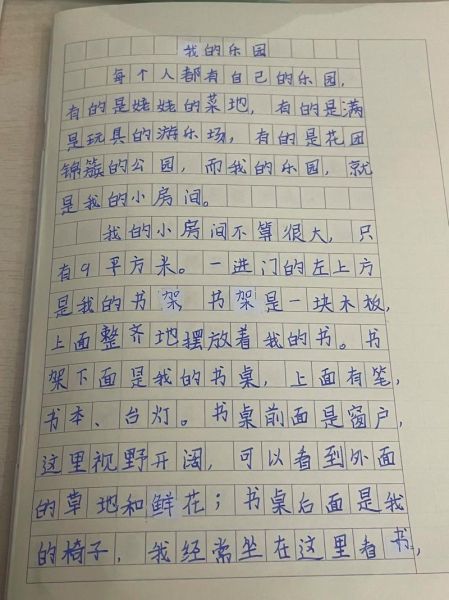 我的乐园
每个人都有自己的乐园，
有的是姥姥的菜地，有的是满
是玩具的游乐场，有的是花团
锦簇的公园，而我的乐园，就
是我的小房间。
我的小房间不算很大，只
有9平方米。一进门的左上方
是我的书架，书架是一块木板，
上面整齐地摆放着我的书。书
架下面是我的书桌，上面有笔，
书本、台灯。书桌前面是窗户，
这里视野开阔，可以看到外面
的草地和鲜花；书桌后面是我
的椅子，我经常坐在这里看书，